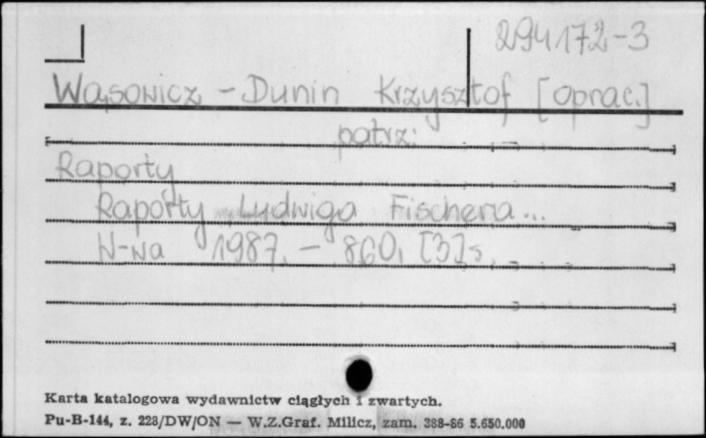 294172-3
Wąsowicz - Dunin Krzysztof [oprac.]
patrz:
Raporty
Raporty Ludwiga Fischera...
W-wa 1987. - 860, [3] s.
Karta katalogowa wydawnictw ciągłych i zwartych.
Pu-B-144, z. 223/DW/ON — W.Z.Graf. Milicz, zam. 388-86 5.650.000